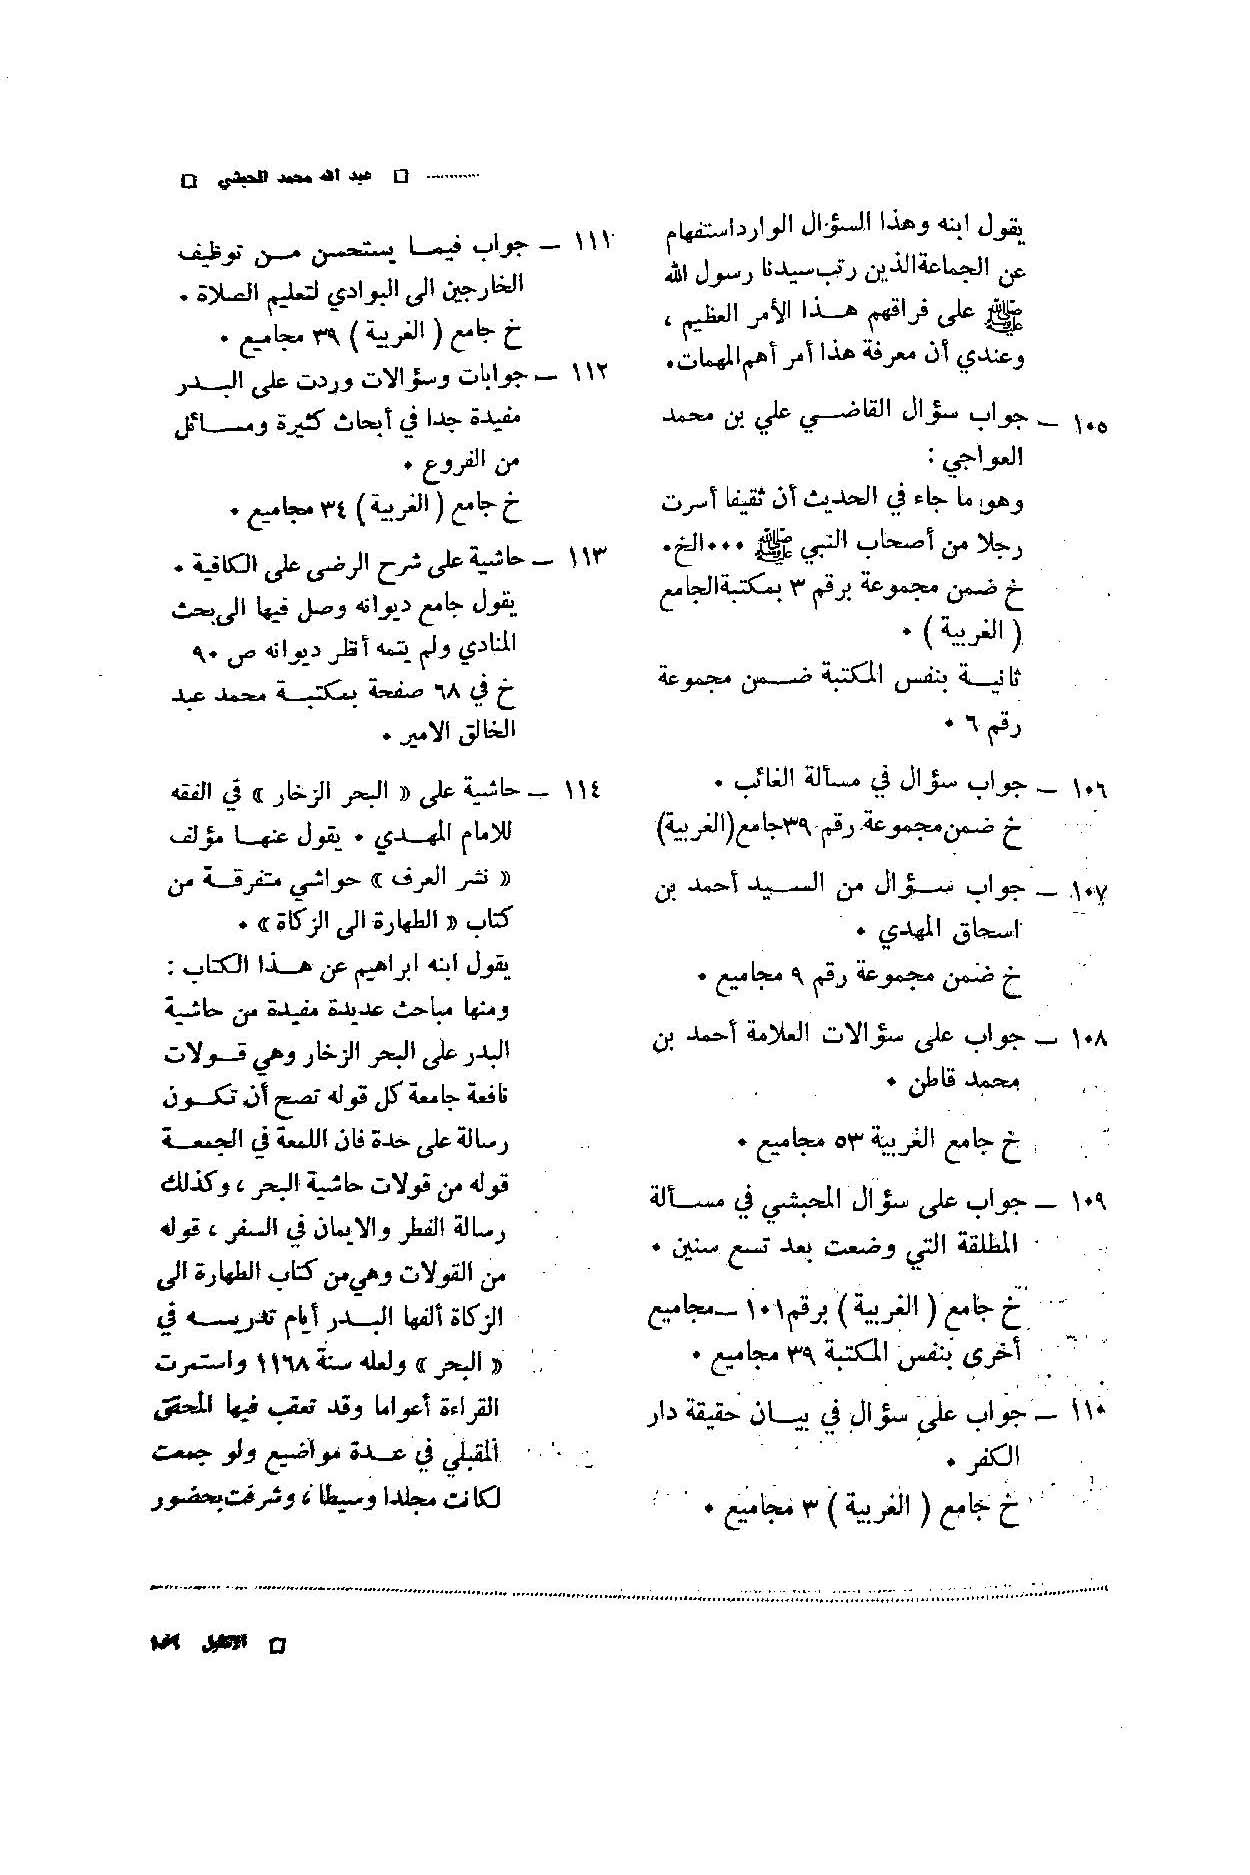 □ عبد الله محمد الحبشي □
يقول ابنه وهذا السؤال الوارد استفهام
عن الجماعة الذين رتب سيدنا رسول الله
ﷺ على فراقهم هـذا الأمر العظيم ،
وعندي أن معرفة هذا أمر أهم المهمات.
١٠٥ – جواب سؤال القاضي علي بن محمد
العواجي :
وهو ما جاء في الحديث أن ثقيفا أسرت
رجلا من أصحاب النبي ﷺ ...الخ.
خ ضمن مجموعة برقم ٣ بمكتبة الجامع
( الغربية ) .
ثانية بنفس المكتبة ضمن مجموعة
رقم ٦ .
١٠٦ – جواب سؤال في مسألة الغائب .
خ ضمن مجموعة رقم ٣٩ جامع (الغربية)
١٠٧ – جواب سؤال من السيد أحمد بن
اسحاق المهدي .
خ ضمن مجموعة رقم ٩ مجاميع .
١٠٨ – جواب على سؤالات العلامة أحمد بن
محمد قاطن .
خ جامع الغربية ٥٣ مجاميع .
١٠٩ – جواب على سؤال المحبشي في مسألة
المطلقة التي وضعت بعد تسع سنين .
خ جامع ( الغربية ) برقم ١٠١ – مجاميع
أخرى بنفس المكتبة ٣٩ مجاميع .
١١٠ – جواب على سؤال في بيان حقيقة دار
الكفر .
خ جامع ( الغربية ) ٣ مجاميع .
١١١ – جواب فيما يستحسن من توظيف
الخارجين الى البوادي لتعليم الصلاة .
خ جامع ( الغربية ) ٣٩ مجاميع .
١١٢ – جوابات وسؤالات وردت على البدر
مفيدة جدا في أبحاث كثيرة ومسائل
من الفروع .
خ جامع ( الغربية ) ٣٤ مجاميع .
١١٣ – حاشية على شرح الرضى على الكافية .
يقول جامع ديوانه وصل فيها الى بحث
المنادي ولم يتمه أنظر ديوانه ص ٩٠
خ في ٦٨ صفحة بمكتبة محمد عبد
الخالق الامير .
١١٤ – حاشية على « البحر الزخار » في الفقه
للامام المهدي . يقول عنها مؤلف
« نشر العرف » حواشي متفرقة من
كتاب « الطهارة الى الزكاة » .
يقول ابنه ابراهيم عن هذا الكتاب :
ومنها مباحث عديدة مفيدة من حاشية
البدر على البحر الزخار وهي قولات
نافعة جامعة كل قوله تصح أن تكون
رسالة على حدة فان اللمعة في الجمعة
قوله من قولات حاشية البحر ، وكذلك
رسالة الفطر والايمان في السفر ، قوله
من القولات وهي من كتاب الطهارة الى
الزكاة ألفها البدر أيام تدريسه في
« البحر » ولعله سنة ١١٦٨ واستمرت
القراءة أعواما وقد تعقب فيها المحقق
المقبلي في عدة مواضيع ولو جمعت
لكانت مجلدا وسيطا ، وشرفت بحضور
□ الاكليل